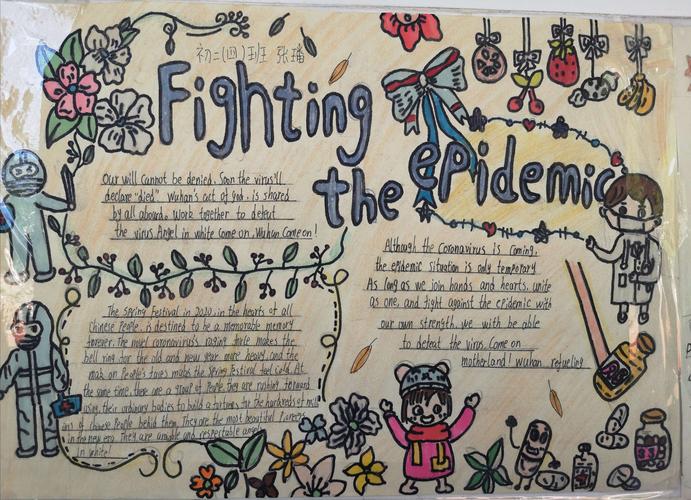 初二(四)班 张璠
Fighting
the epidemic
Our will cannot be denied. Soon the virus'll
declare "died" Wuhan's act of god. is shared
by all aboard. Work together to defeat
the virus Angel in white come on. Wuhan Come on!
Although the Coronavirus is coming.
the epidemic situation is only temporary
As long as we join hands and hearts, unite
as one, and fight against the epidemic with
our own strength, we with be able
to defeat the virus. Come on
motherland! Wuhan refueling
The Spring Festival in 2020, in the hearts of all
Chinese People, is destined to be a memorable memory
forever. The novel coronavirus's raging force makes the
bell ring for the old and new year more heavy, and the
mask on People's faces makes the Spring Festival feel cold. At
the same time, there are a group of People, they are rushing forward
using their ordinary bodies to build a fortress for the hundreds of mill
ions of Chinese People behind them. They are the most beautiful Pioneers
in the new era. They are amiable and respectable angel
in white!